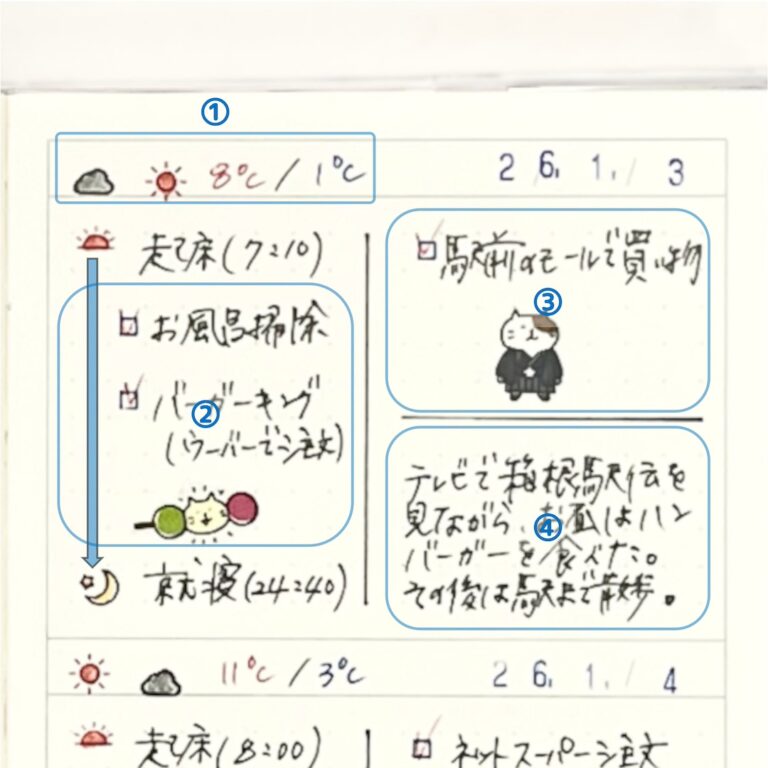 ①
8℃ / 1℃ 26. 1. / 3
起床(7:10)
お風呂掃除
バーガーキング
②
(ウーバーで注文)
就寝(24:40)
駅前のモールで買い物
③
テレビで箱根駅伝を
見ながら、お昼はハン
④
バーガーを食べた。
その後は駅まで散歩。
11℃ / 3℃ 26. 1. / 4
起床(8:00)
ネットスーパー注文